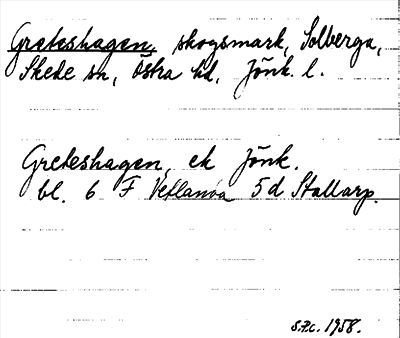 Greteshagen, skogsmark, Solberga,
Skede sn, Östra hd, Jönk. l.
Greteshagen, ek Jönk.
bl. 6 F Vetlanda 5 d Stallarp.
S.F.c. 1958.